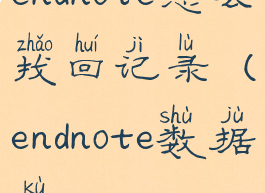 endnote怎么
zhǎo huí jì lù
找回记录（
shù jù
endnote数据
kù